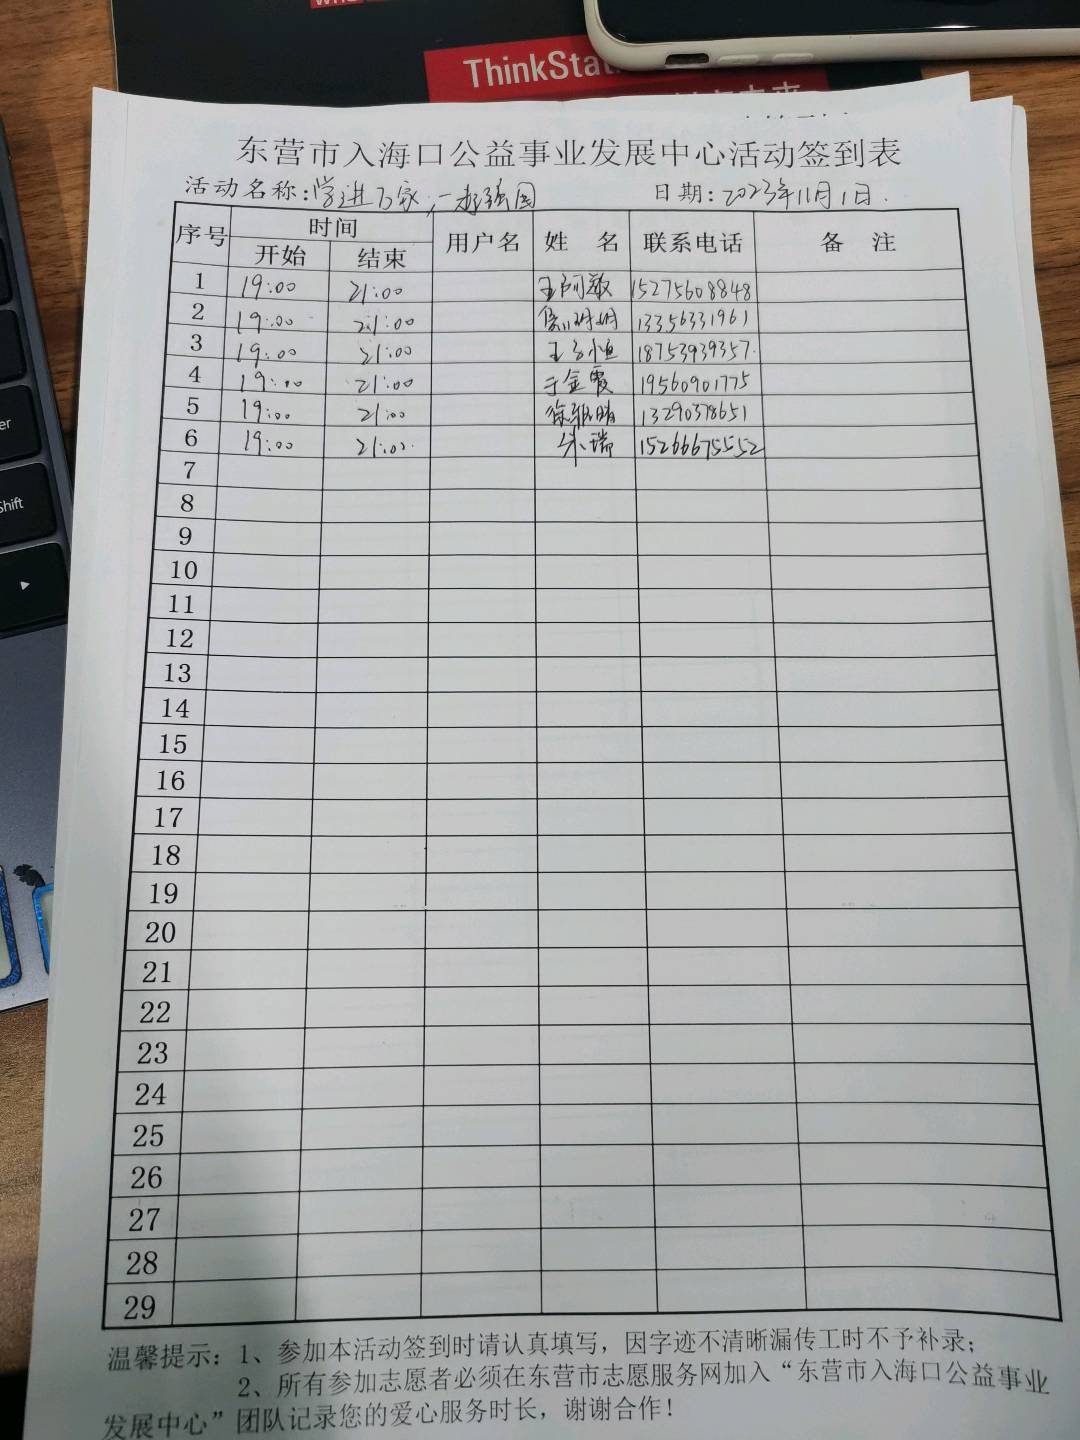 ThinkStat
东营市入海口公益事业发展中心活动签到表
活动名称:学进万家, 日期:2023年11月1日.
序号 时间 用户名 姓 名 联系电话 备 注
开始 结束
1 19:00 21:00 15275608848
2 19:00 21:00 13356331961
3 19:00 21:00 王子恒 18753939357.
4 19:00 21:00 于金霞 19560901775
5 19:00 21:00 13290378651
6 19:00 21:00 朱瑞 15266675552
7
8
9
10
11
12
13
14
15
16
17
18
19
20
21
22
23
24
25
26
27
28
29
温馨提示:1、参加本活动签到时请认真填写,因字迹不清晰漏传工时不予补录;
2、所有参加志愿者必须在东营市志愿服务网加入“东营市入海口公益事业
发展中心”团队记录您的爱心服务时长,谢谢合作!
er
Shift